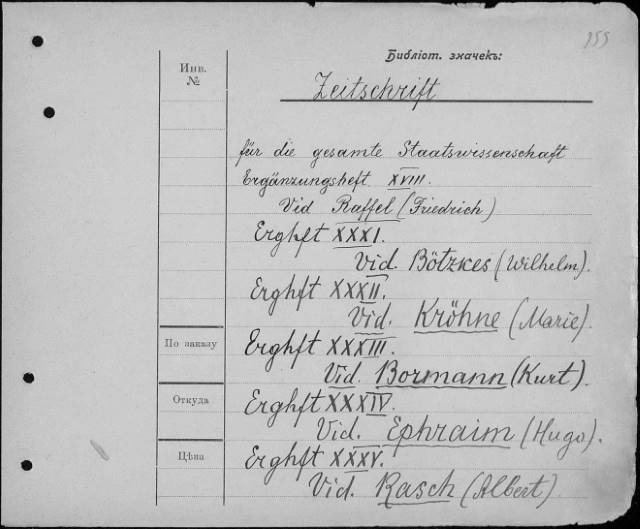 155
Библіот. значекъ:
Инв.
№
Zeitschrift
für die gesamte Staatswissenschaft
Ergänzungsheft XVIII.
Vid Raffel (Friedrich)
Erghft XXXI.
Vid. Bötzkes (Wilhelm).
Erghft XXXII.
Vid. Kröhne (Marie).
По заказу
Erghft XXXIII.
Vid. Bormann (Kurt).
Откуда
Erghft XXXIV.
Vid. Ephraim (Hugo).
Цѣна
Erghft XXXV.
Vid. Rasch (Albert).